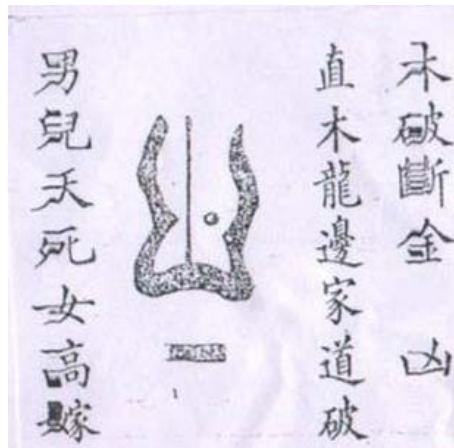 木破斷金 凶
直木龍邊家道破
男兒夭死女高嫁